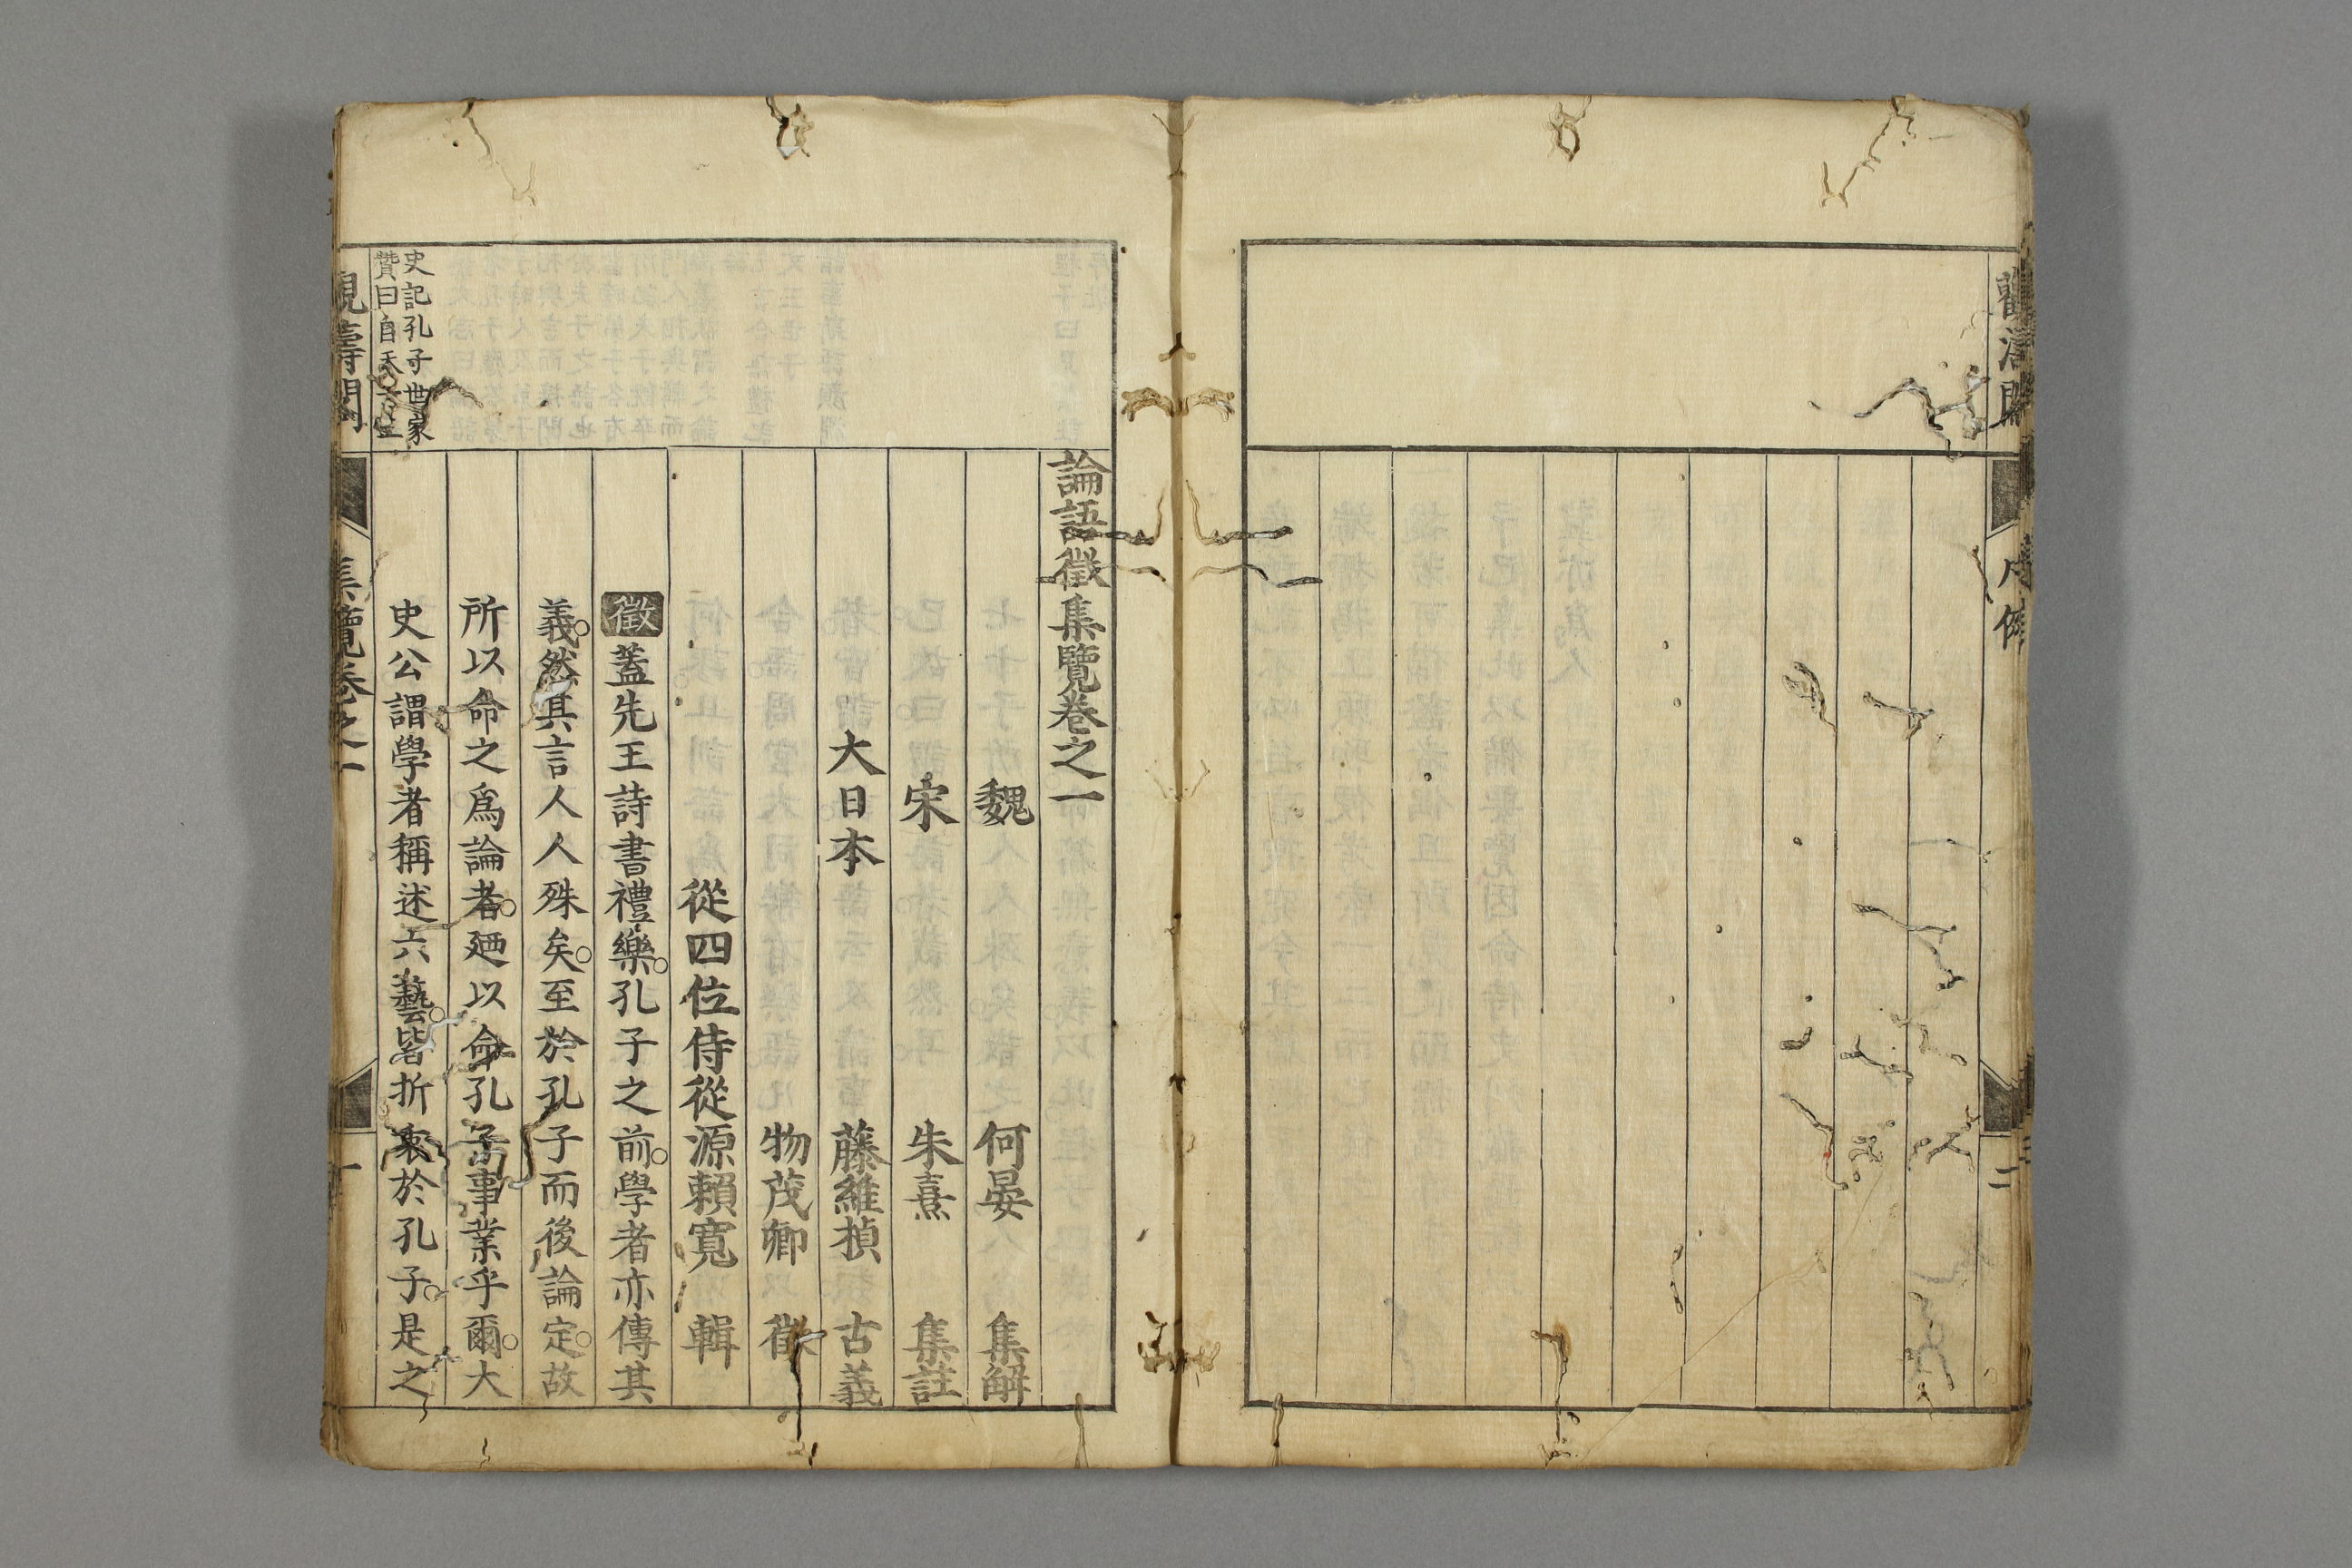 觀濤閣
凡例
二
論語徵集覽卷之一
魏 何晏 集解
宋 朱熹 集註
大日本 藤維楨 古義
物茂卿 徵
從四位侍從源賴寬 輯
徵 蓋先王詩書禮樂。孔子之前。學者亦傳其
義。然其言人人殊矣。至於孔子而後論定。故
所以命之爲論者。廼以命孔子事業乎爾。大
史公謂學者稱述六藝。皆折衷於孔子。是之
史記孔子世家
贊曰自天子王
觀濤閣
集覽卷之一
一